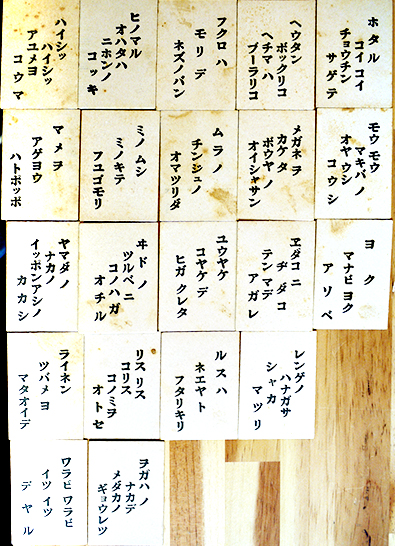 ハイシッ
ハイシッ
アユメヨ
コウマ
ヒノマル
オハタハ
ニホンノ
コッキ
フクロハ
モリデ
ネズノバン
ヘウタン
ポックリコ
ヘチマハ
ブーラリコ
ホタル
コイコイ
チョウチン
サゲテ
マメヲ
アゲヨウ
ハトポッポ
ミノムシ
ミノキテ
フユゴモリ
ムラノ
チンジュノ
オマツリダ
メガネヲ
カケタ
ボウヤノ
オイシャサン
モウモウ
マキバノ
オヤウシ
コウシ
ヤマダノ
ナカノ
イッポンアシノ
カカシ
ヰドノ
ツルベニ
コノハガ
オチル
ユウヤケ
コヤケデ
ヒガクレタ
ヱダコニ
ヂダコ
テンマデ
アガレ
ヨク
マナビヨク
アソベ
ライネン
ツバメヨ
マタオイデ
リスリス
コリス
コノミヲ
オトセ
ルスハ
ネエヤト
フタリキリ
レンゲノ
ハナガサ
シャカ
マツリ
ワラビワラビ
イツイツ
デヤル
ヲガハノ
ナカデ
メダカノ
ギョウレツ